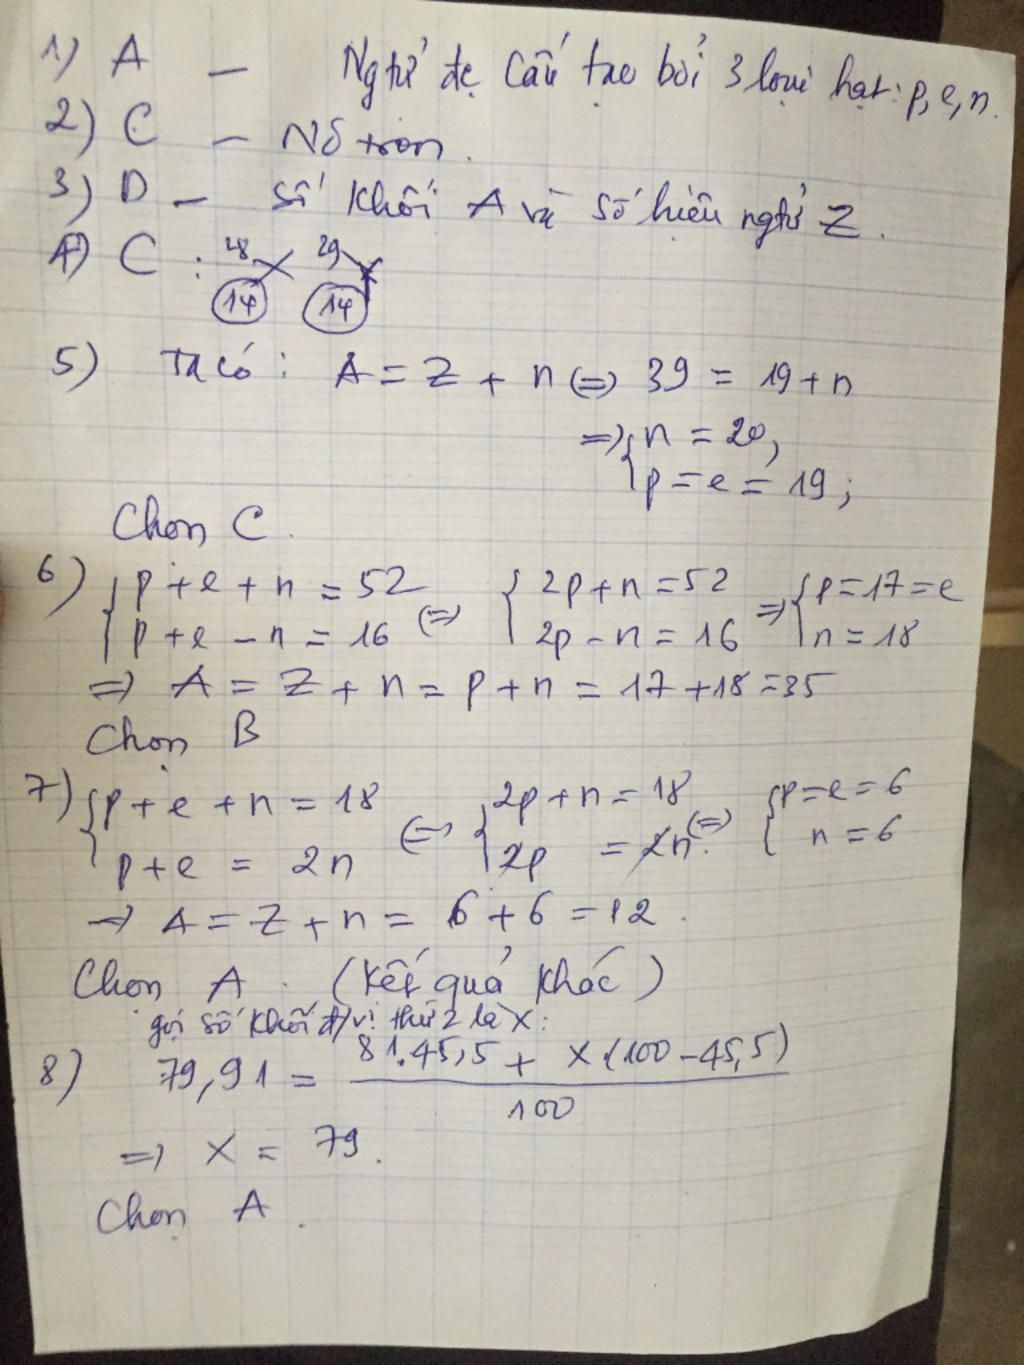 1) A - Ngtử đc cấu tạo bởi 3 loại hạt: p, e, n.
2) C - Nơtron.
3) D - số khối A và số hiệu ngtử Z.
4) C : 28 X 29 X
14 14
5) Ta có : A = Z + n (=) 39 = 19 + n
=) { n = 20,
p = e = 19 ;
Chọn C.
6) { p + e + n = 52 (=) { 2p + n = 52 =) { p = 17 = e
p + e - n = 16 2p - n = 16 n = 18
=) A = Z + n = p + n = 17 + 18 = 35
Chọn B
7) { p + e + n = 18 (=) { 2p + n = 18 (=) { p = e = 6
p + e = 2n 2p = 2n. n = 6
-) A = Z + n = 6 + 6 = 12.
Chọn A. (Kết quả khác)
gọi số khối đ/vị thứ 2 là X:
8) 79,91 = 81.45,5 + X.(100 - 45,5)
100
=) X = 79.
Chọn A.